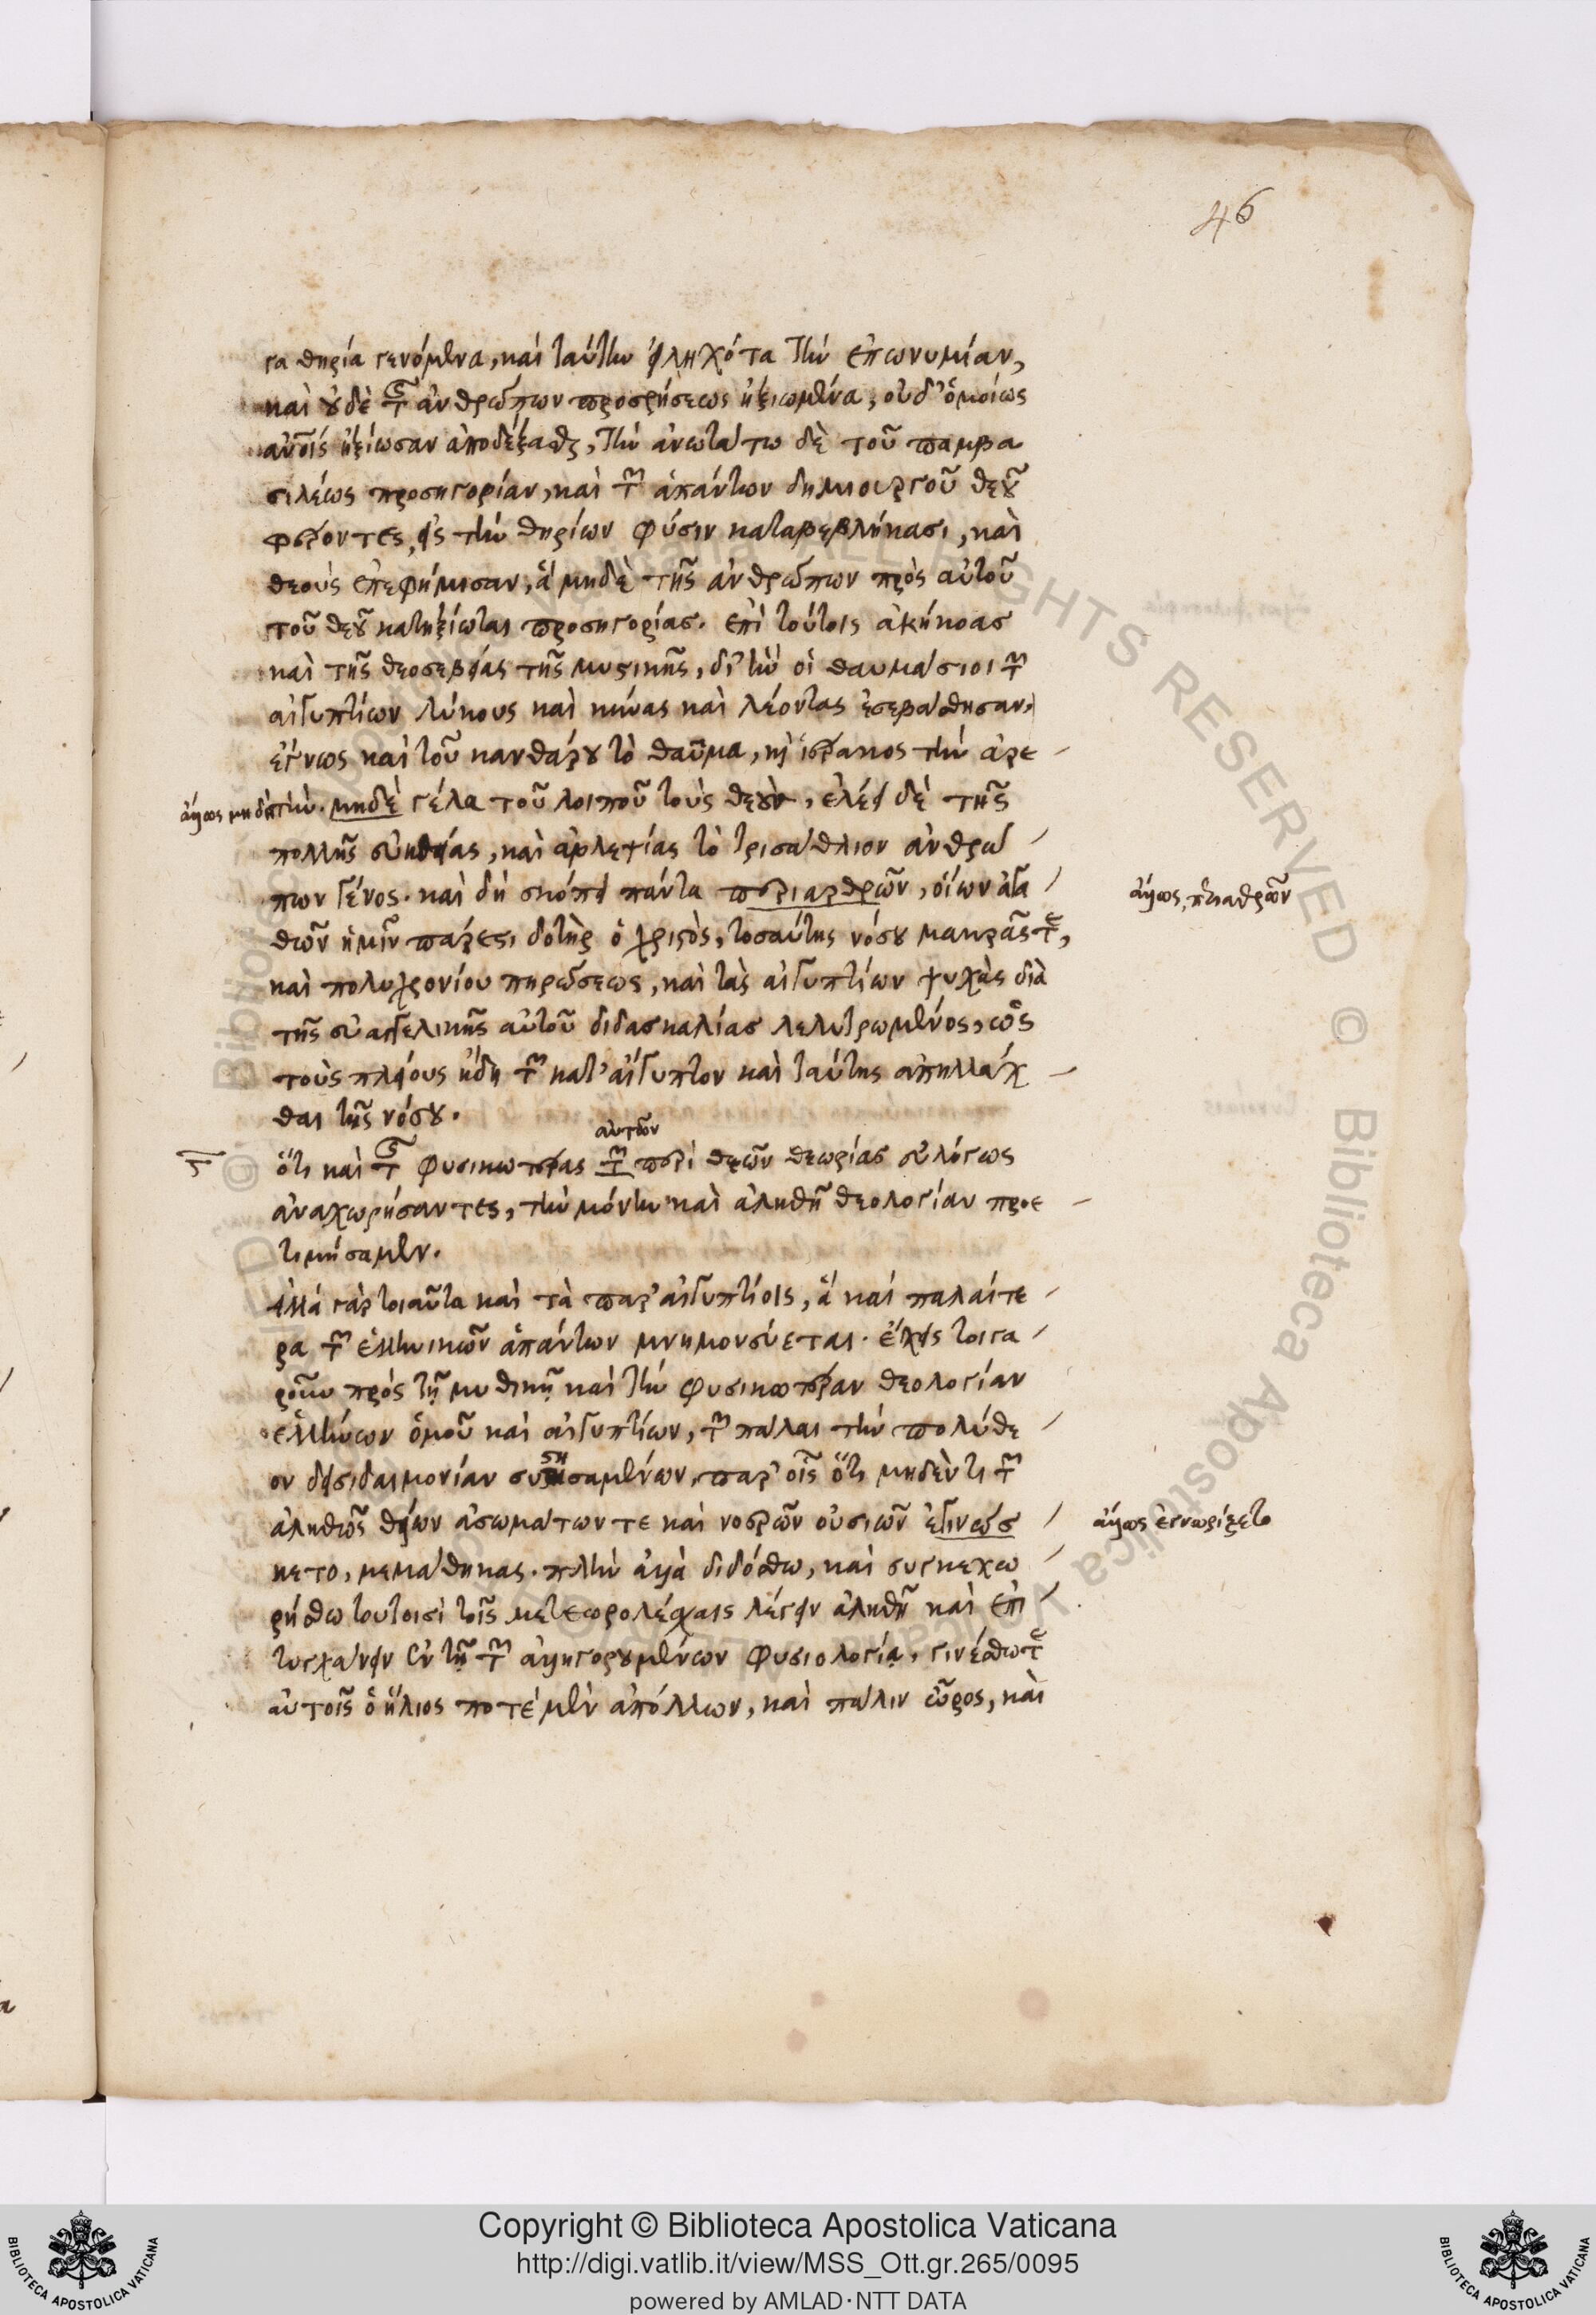 46
γα θηρία γενόμενα, καὶ ταύτην εἰληχότα τὴν ἐπωνυμίαν,
καὶ οὐδὲ τῆς ἀνθρώπων προσρήσεως ἠξιωμένα, οὐδ' ὁμοίως
αὐτοῖς ἠξίωσαν ἀποδέξασθαι, τὴν ἀνωτάτω δὲ τοῦ παμβα
σιλέως προσηγορίαν, καὶ τῶν ἁπάντων δημιουργοῦ θεοῦ
φέροντες, εἰς τὴν θηρίων φύσιν καταβεβλήκασι, καὶ
θεοὺς ἐπεφήμισαν, ἃ μηδὲ τῆς ἀνθρώπων πρὸς αὐτοῦ
τοῦ θεοῦ κατηξίωται προσηγορίας. ἐπὶ τούτοις ἀκήκοας
καὶ τῆς θεοσεβείας τῆς μυστικῆς, δι' ἣν οἱ θαυμάσιοι τῶν
αἰγυπτίων λύκους καὶ κύνας καὶ λέοντας ἐσεβάσθησαν,
ἔγνως καὶ τοῦ κανθάρου τὸ θαῦμα, καὶ ἱέρακος τὴν ἀρε
ἄλλως μηδὲ τήν. μηδὲ γέλα τοῦ λοιποῦ τοὺς θεούς, ἐλέει δὲ τῆς
πολλῆς εὐηθείας, καὶ ἀβλεψίας τὸ τρισάθλιον ἀνθρώ
πων γένος. καὶ δὴ σκόπει πάντα περιαρθρῶν, οἵων ἀγα
ἄλλως, περιαθρῶν
θῶν ἡμῖν πάρεστι δοτὴρ ὁ χριστὸς, τοσαύτης νόσου μακρᾶς τε,
καὶ πολυχρονίου πηρώσεως, καὶ τὰς αἰγυπτίων ψυχὰς διὰ
τῆς εὐαγγελικῆς αὐτοῦ διδασκαλίας λελυτρωμένος, ὡς
τοὺς πλείους ἤδη τῶν κατ' αἴγυπτον καὶ ταύτης ἀπηλλάχ
θαι τῆς νόσου.
αὐτῶν
ὅτι καὶ τῆς φυσικωτέρας τῶν περὶ θεῶν θεωρίας εὐλόγως
ἀναχωρήσαντες, τὴν μόνην καὶ ἀληθῆ θεολογίαν προε
τιμήσαμεν.
ἀλλὰ γὰρ τοιαῦτα καὶ τὰ παρ' αἰγυπτίοις, ἃ καὶ παλαίτε
ρα τῶν ἑλληνικῶν ἁπάντων μνημονεύεται. ἔχεις τοιγα
ροῦν πρὸς τῇ μυθικῇ καὶ τὴν φυσικωτέραν θεολογίαν
ἑλλήνων ὁμοῦ καὶ αἰγυπτίων, τῶν πάλαι τὴν πολύθε
ον δεισιδαιμονίαν συστησαμένων, παρ' οἷς ὅτι μηδέν τι τῶν
ἀληθῶς θείων ἀσωμάτων τε καὶ νοερῶν οὐσιῶν ἐγινώσ
ἄλλως ἐγνωρίζετο
κετο, μεμάθηκας. πλὴν ἀλλὰ διδόσθω, καὶ συγκεχω
ρήσθω τουτοισὶ τοῖς μετεωρολέσχαις λέγειν ἀληθῆ καὶ ἐπι
τυγχάνειν ἐν τῇ τῶν ἀλληγορουμένων φυσιολογίᾳ, γινέσθω τε
αὐτοῖς ὁ ἥλιος ποτὲ μὲν ἀπόλλων, καὶ πάλιν ὧρος, καὶ
Copyright © Biblioteca Apostolica Vaticana
http://digi.vatlib.it/view/MSS_Ott.gr.265/0095
powered by AMLAD·NTT DATA